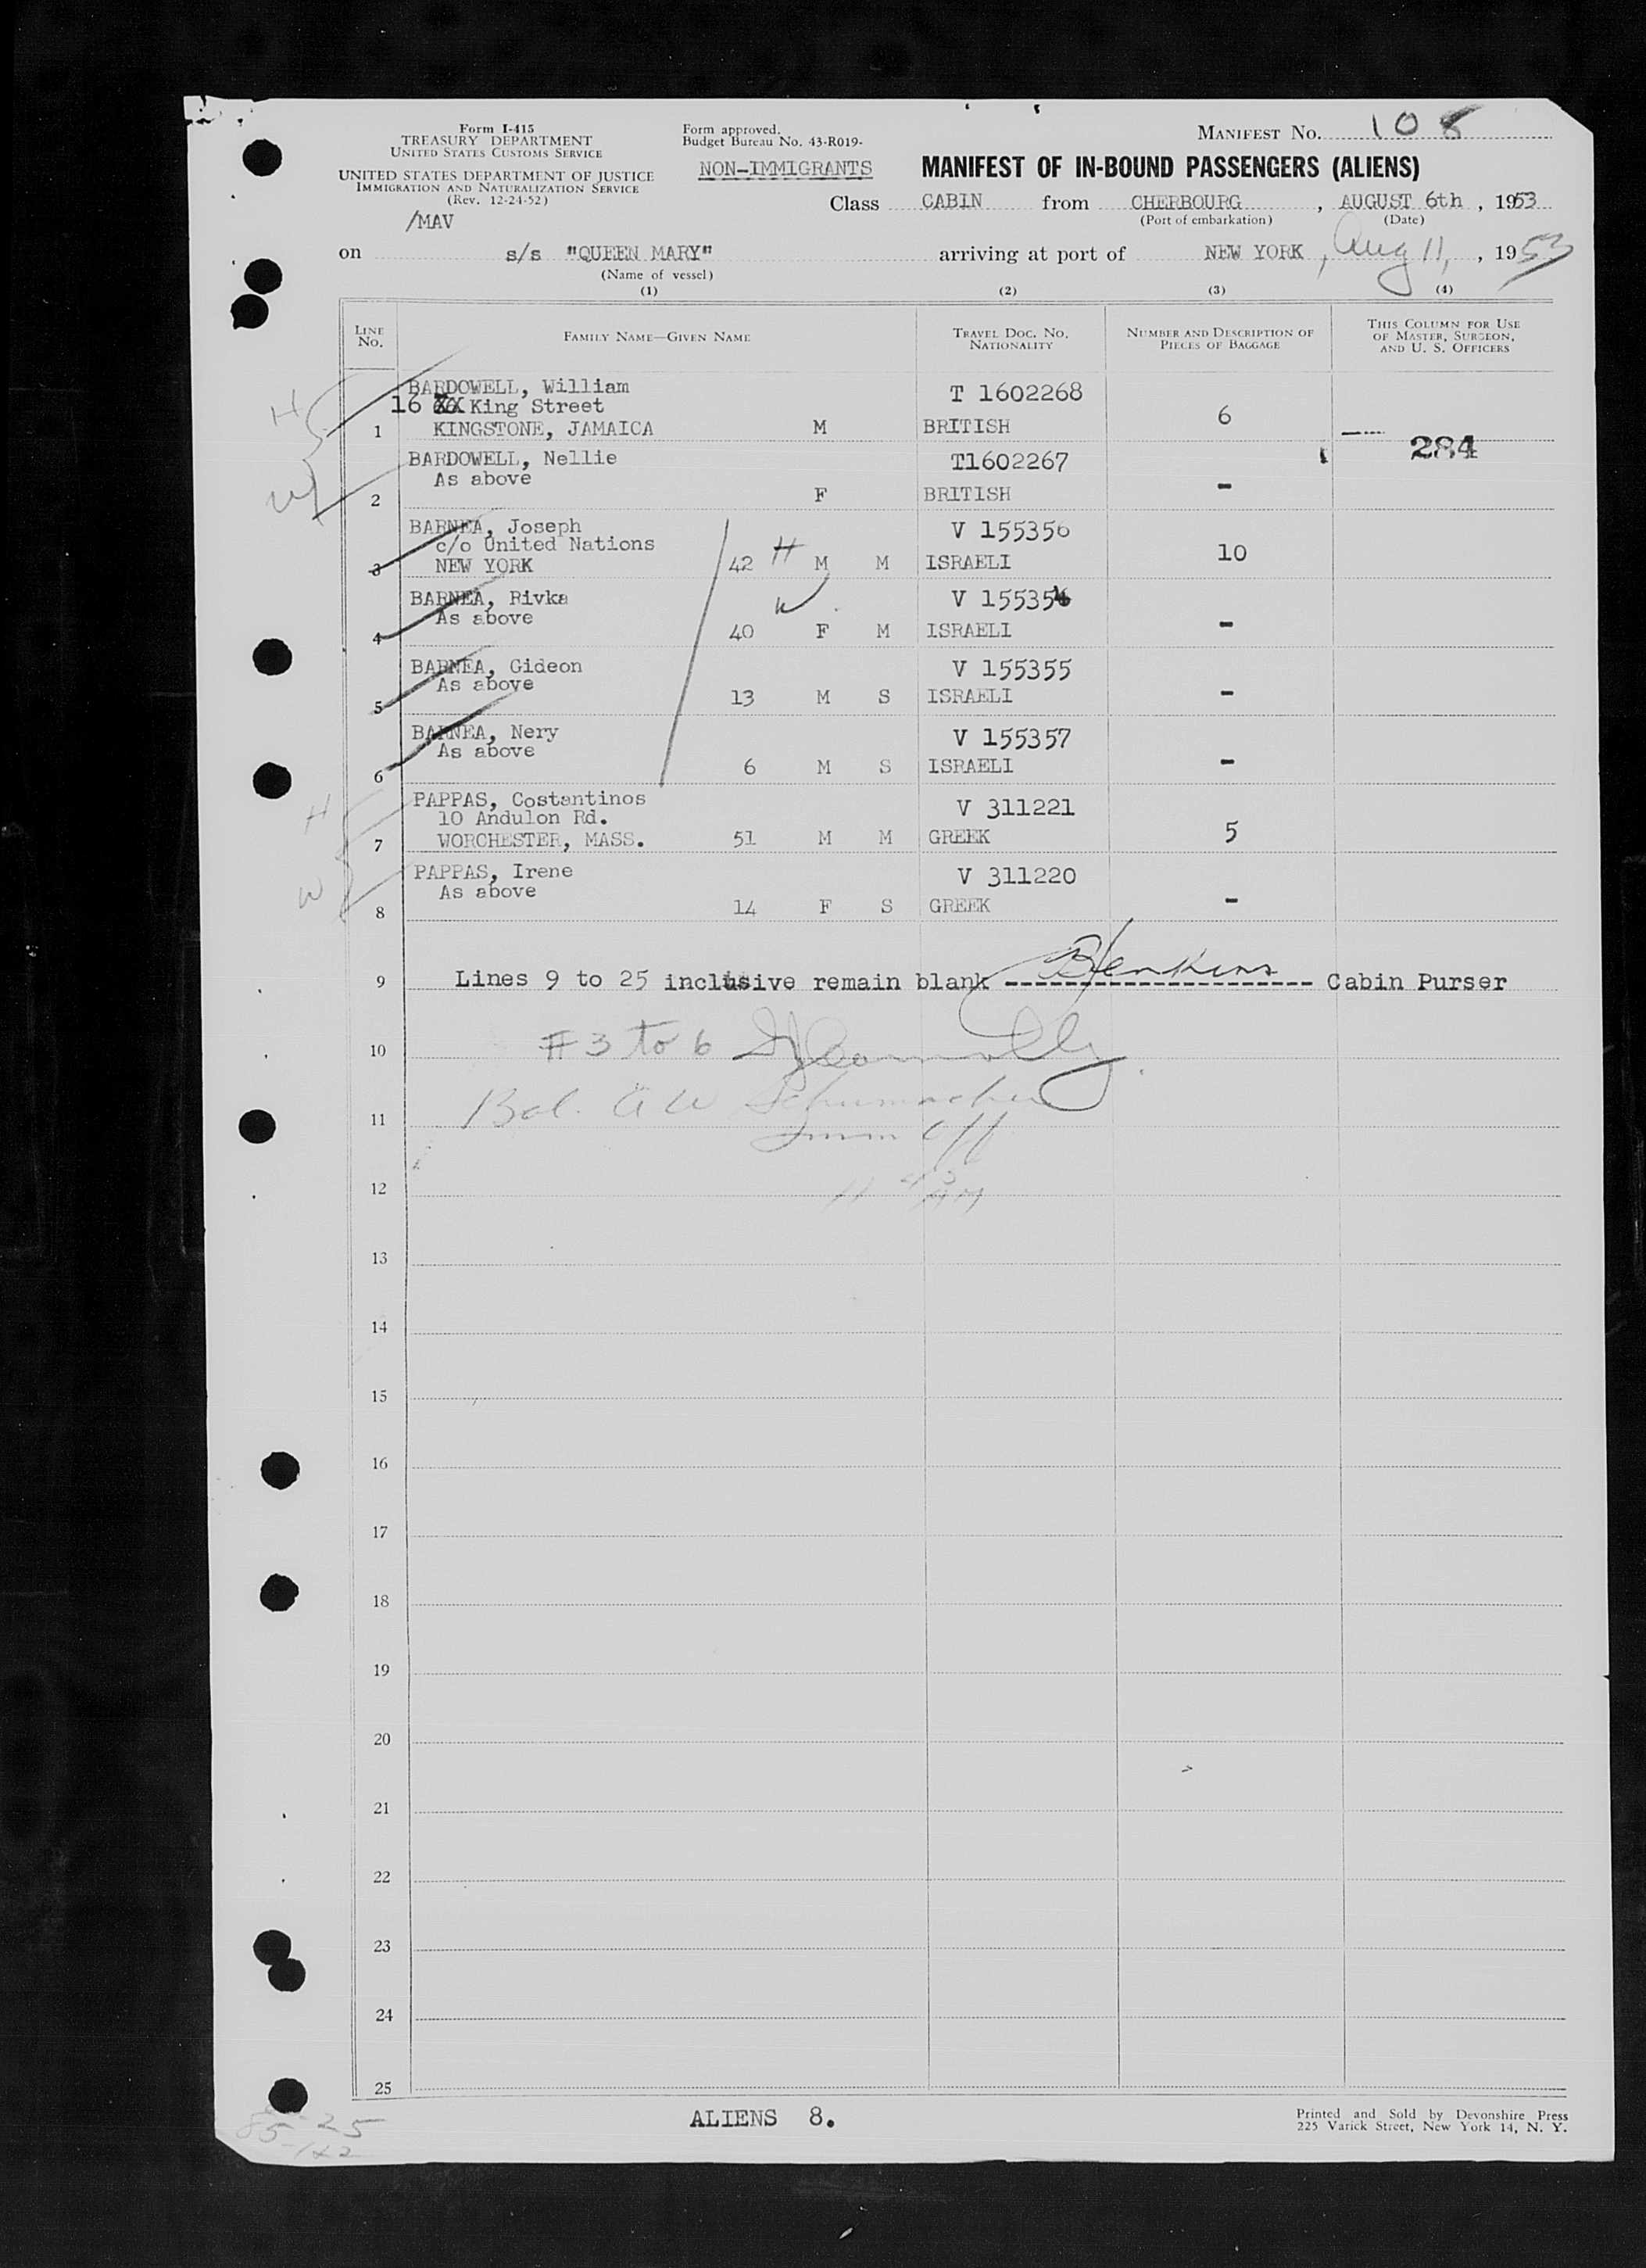 Form I-415
TREASURY DEPARTMENT
UNITED STATES CUSTOMS SERVICE
UNITED STATES DEPARTMENT OF JUSTICE
IMMIGRATION AND NATURALIZATION SERVICE
(Rev. 12-24-52)
/MAV
Form approved.
Budget Bureau No. 43-R019-
NON-IMMIGRANTS
MANIFEST NO. 108
MANIFEST OF IN-BOUND PASSENGERS (ALIENS)
Class CABIN from CHERBOURG , AUGUST 6th , 1953
(Port of embarkation) (Date)
on s/s "QUEEN MARY" arriving at port of NEW YORK , Aug 11, , 1953
(Name of vessel)
(1) (2) (3) (4)
LINE NO. FAMILY NAME—GIVEN NAME TRAVEL DOC. NO. NATIONALITY NUMBER AND DESCRIPTION OF PIECES OF BAGGAGE THIS COLUMN FOR USE OF MASTER, SURGEON, AND U. S. OFFICERS
BARDOWELL, William T 1602268
H 16 XX King Street 6
1 KINGSTONE, JAMAICA M BRITISH
284
BARDOWELL, Nellie T1602267
As above
W 2 F BRITISH -
BARNEA, Joseph V 155356
c/o United Nations
3 NEW YORK 42 H M M ISRAELI 10
BARNEA, Rivka W V 155354
As above
4 40 F M ISRAELI -
BARNEA, Gideon V 155355
As above
5 13 M S ISRAELI -
BARNEA, Nery V 155357
As above
6 6 M S ISRAELI -
PAPPAS, Costantinos V 311221
H 10 Andulon Rd.
7 WORCHESTER, MASS. 51 M M GREEK 5
PAPPAS, Irene V 311220
W As above
8 14 F S GREEK -
9 Lines 9 to 25 inclusive remain blank Cabin Purser
10 # 3 to 6
11 Bal. A W Schumacher
Imm Off
12 11 45 AM
13
14
15
16
17
18
19
20
21
22
23
24
25
ALIENS 8.
Printed and Sold by Devonshire Press
225 Varick Street, New York 14, N. Y.